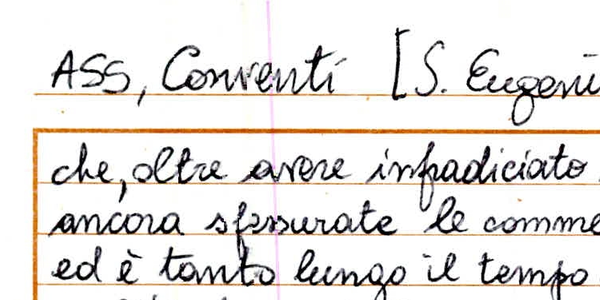 ASS, Conventi [S. Eugeni
che, oltre avere infradiciato
ancora sfessurate le comme
ed è tanto lungo il tempo